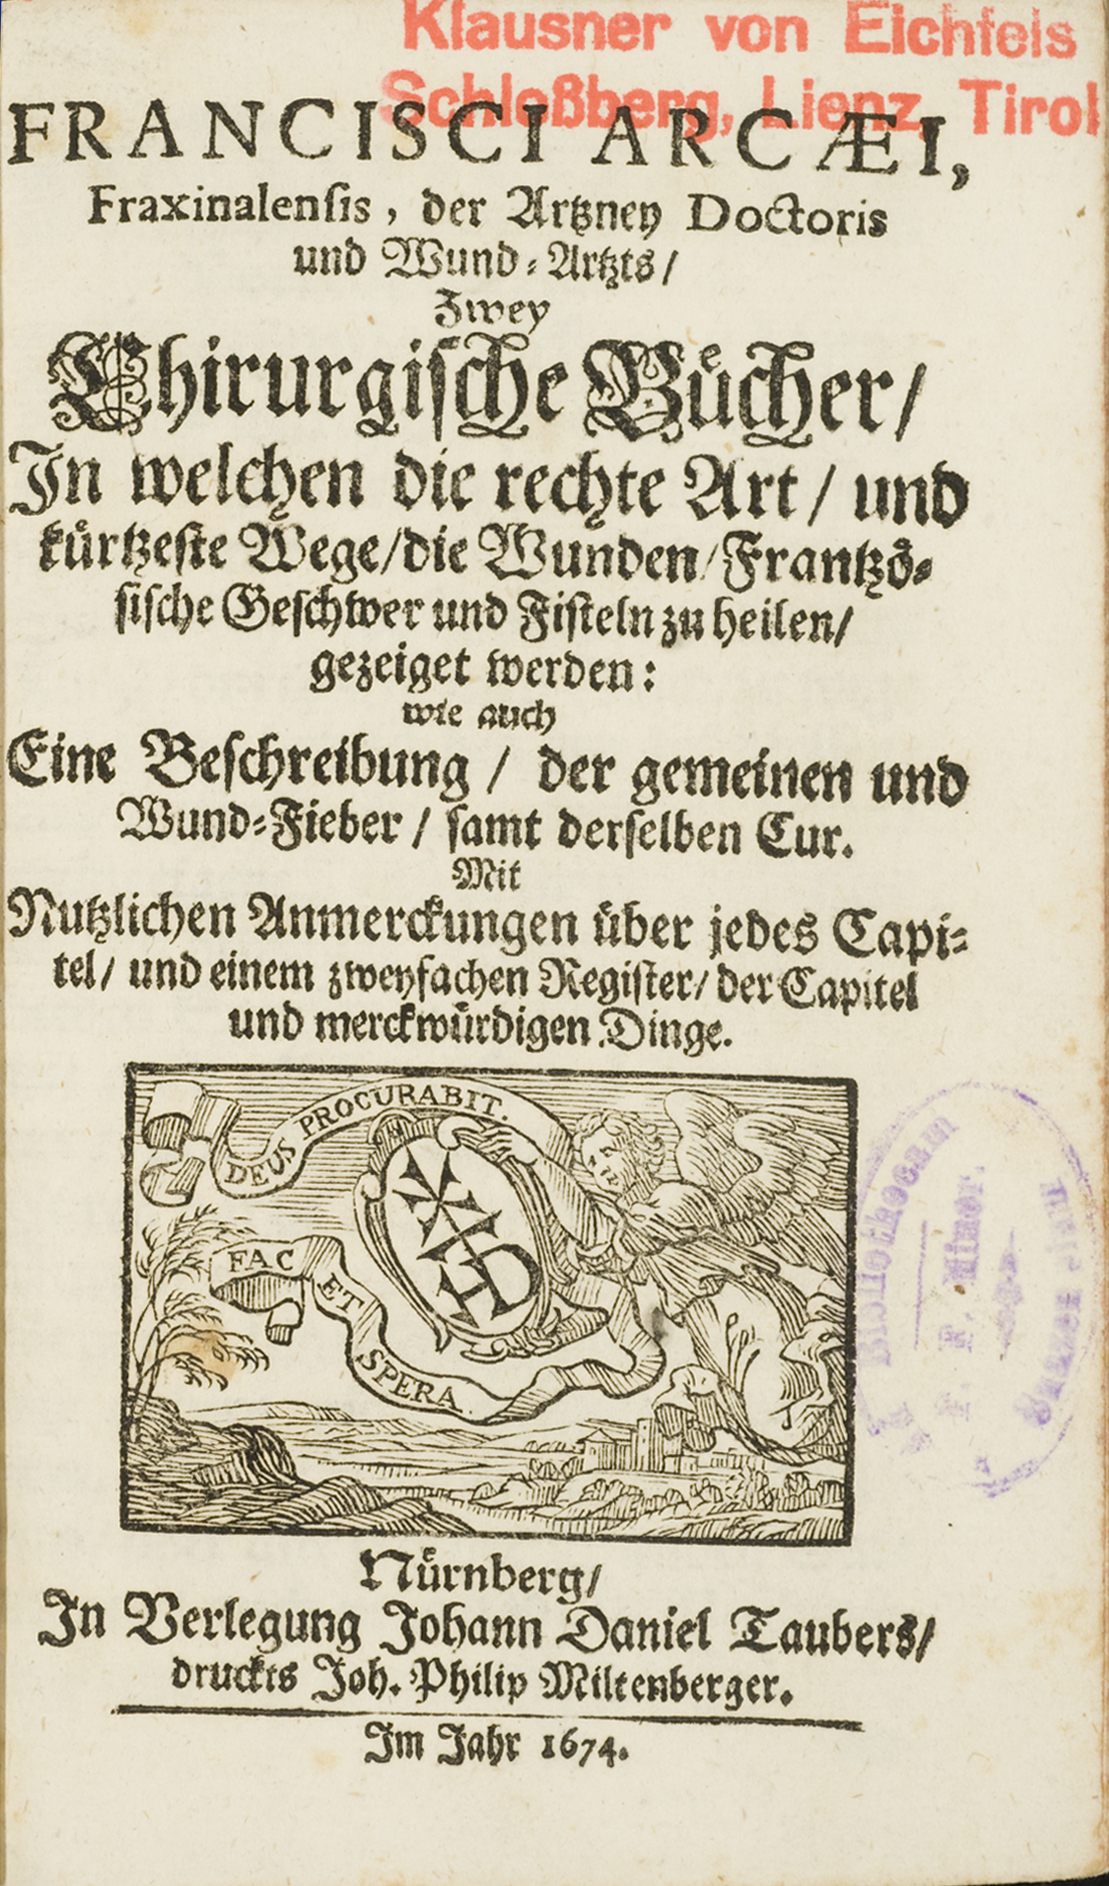 Klausner von Eichfels
Schloßberg, Lienz, Tirol
FRANCISCI ARCÆI,
Fraxinalensis, der Artzney Doctoris
und Wund-Artzts/
Zwey
Chirurgische Bücher/
In welchen die rechte Art/ und
kürtzeste Wege/die Wunden/Frantzö-
sische Geschwer und Fisteln zu heilen/
gezeiget werden:
wie auch
Eine Beschreibung / der gemeinen und
Wund-Fieber / samt derselben Cur.
Mit
Nutzlichen Anmerckungen über jedes Capi-
tel/ und einem zweyfachen Register/ der Capitel
und merckwürdigen Dinge.
DEUS PROCURABIT.
FAC ET SPERA.
HD
Nürnberg/
In Verlegung Johann Daniel Taubers/
druckts Joh. Philip Miltenberger.
Im Jahr 1674.